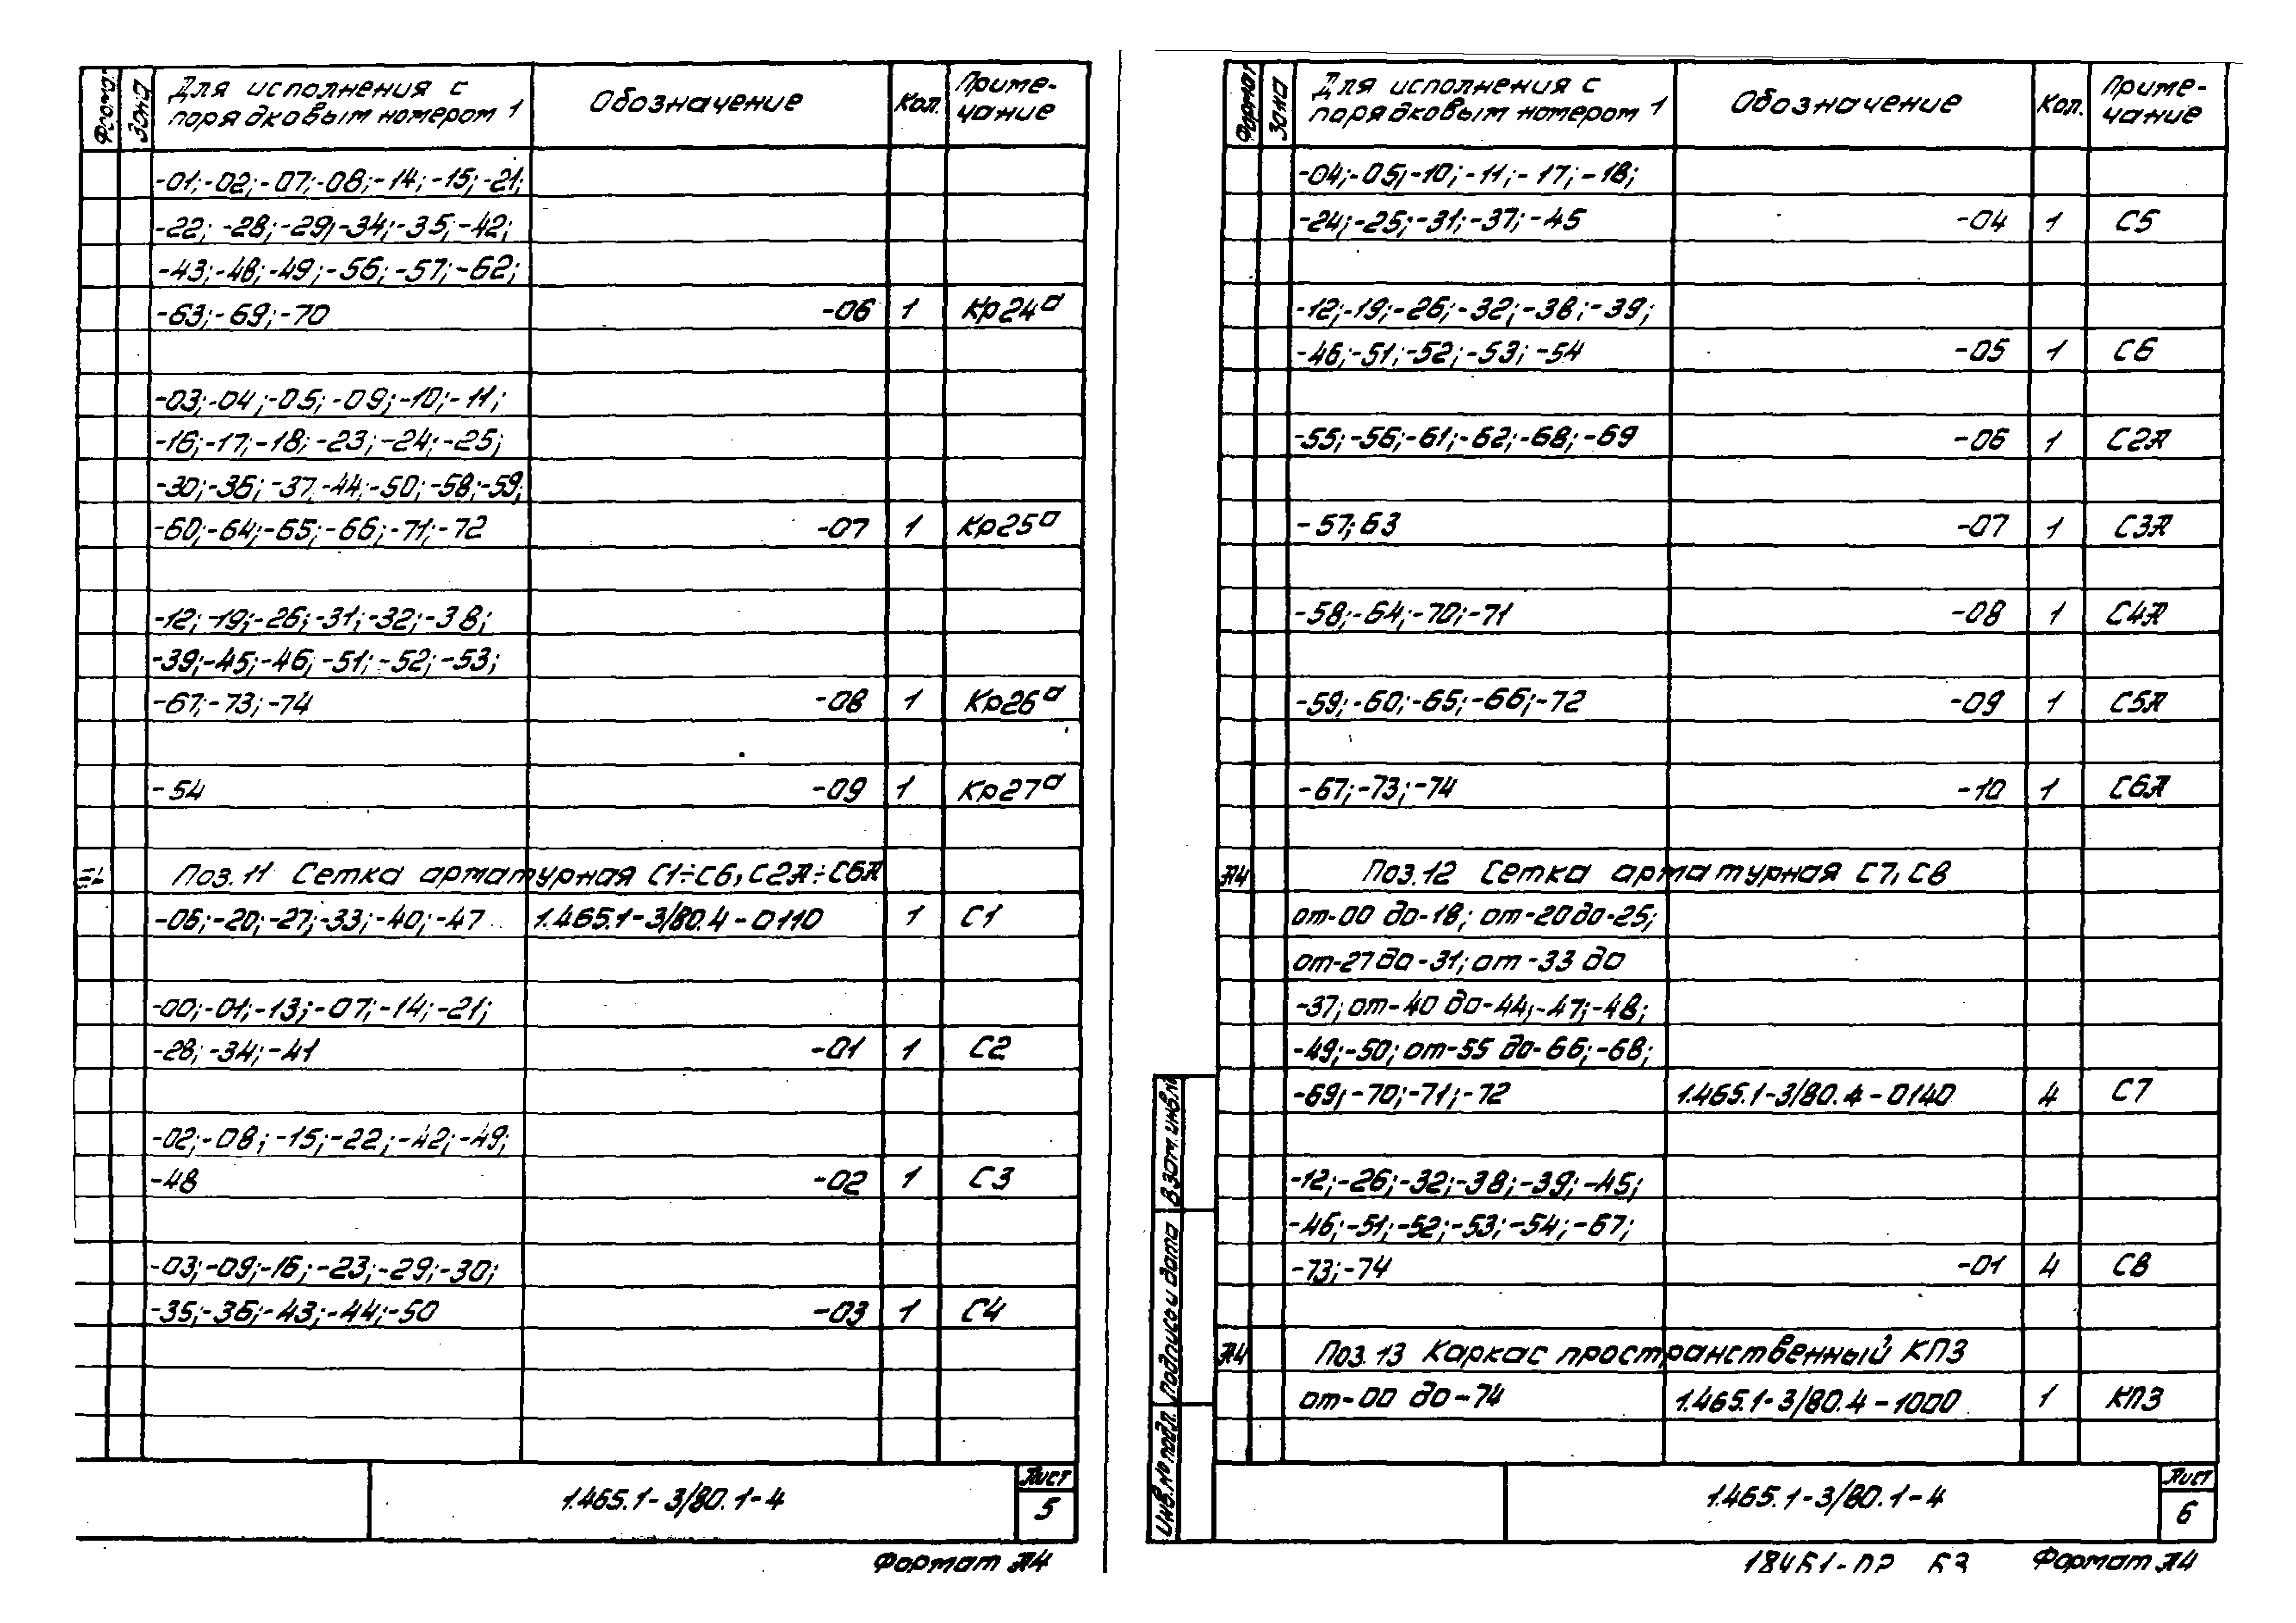 Формат Зона Для исполнения с порядковым номером 1 Обозначение Кол. Приме-чание
-01;-02;-07;-08;-14;-15;-21;
-22;-28;-29;-34;-35;-42;
-43;-48;-49;-56;-57;-62;
-63;-69;-70 -06 1 Кр24а
-03;-04;-05;-09;-10;-11;
-16;-17;-18;-23;-24;-25;
-30;-36;-37;-44;-50;-58;-59;
-60;-64;-65;-66;-71;-72 -07 1 Кр25а
-12;-19;-26;-31;-32;-38;
-39;-45;-46;-51;-52;-53;
-67;-73;-74 -08 1 Кр26а
-54 -09 1 Кр27а
Поз.11 Сетка арматурная С1÷С6, С2А÷С6А
-06;-20;-27;-33;-40;-47 1.465.1-3/80.4-0110 1 С1
-00;-01;-13;-07;-14;-21;
-28;-34;-41 -01 1 С2
-02;-08;-15;-22;-42;-49;
-48 -02 1 С3
-03;-09;-16;-23;-29;-30;
-35;-36;-43;-44;-50 -03 1 С4
1.465.1-3/80.1-4
Лист
5
Формат А4
Формат Зона Для исполнения с порядковым номером 1 Обозначение Кол. Приме-чание
-04;-05;-10;-11;-17;-18;
-24;-25;-31;-37;-45 -04 1 С5
-12;-19;-26;-32;-38;-39;
-46;-51;-52;-53;-54 -05 1 С6
-55;-56;-61;-62;-68;-69 -06 1 С2А
-57;63 -07 1 С3А
-58;-64;-70;-71 -08 1 С4А
-59;-60;-65;-66;-72 -09 1 С5А
-67;-73;-74 -10 1 С6А
А4 Поз.12 Сетка арматурная С7, С8
от-00 до-18; от-20 до-25;
от-27 до-31; от-33 до
-37; от-40 до-44;-47;-48;
-49;-50; от-55 до-66;-68;
-69;-70;-71;-72 1.465.1-3/80.4-0140 4 С7
-12;-26;-32;-38;-39;-45;
-46;-51;-52;-53;-54;-67;
-73;-74 -01 4 С8
А4 Поз.13 Каркас пространственный КП3
от-00 до-74 1.465.1-3/80.4-1000 1 КП3
Взам.инв.№
Подпись и дата
Инв.№ подл.
1.465.1-3/80.1-4
Лист
6
Формат А4